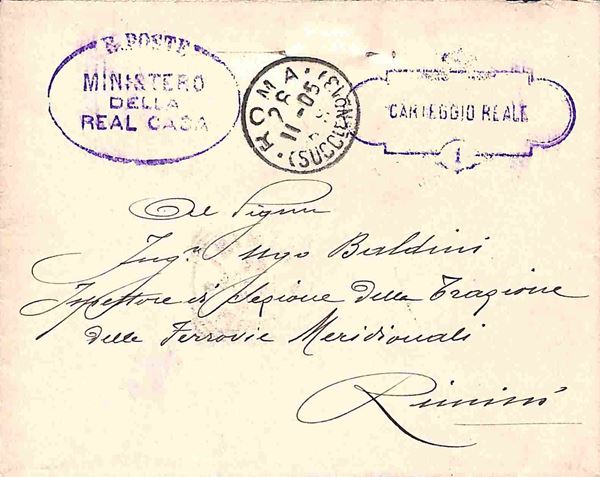 R. POSTE
MINISTERO
DELLA
REAL CASA
ROMA
26
11-05
(SUCCLE NO13)
CARTEGGIO REALE
Al Signor
Ingʳ Ugo Baldini
Ispettore di Sezione della Trazione
delle Ferrovie Meridionali
Rimini